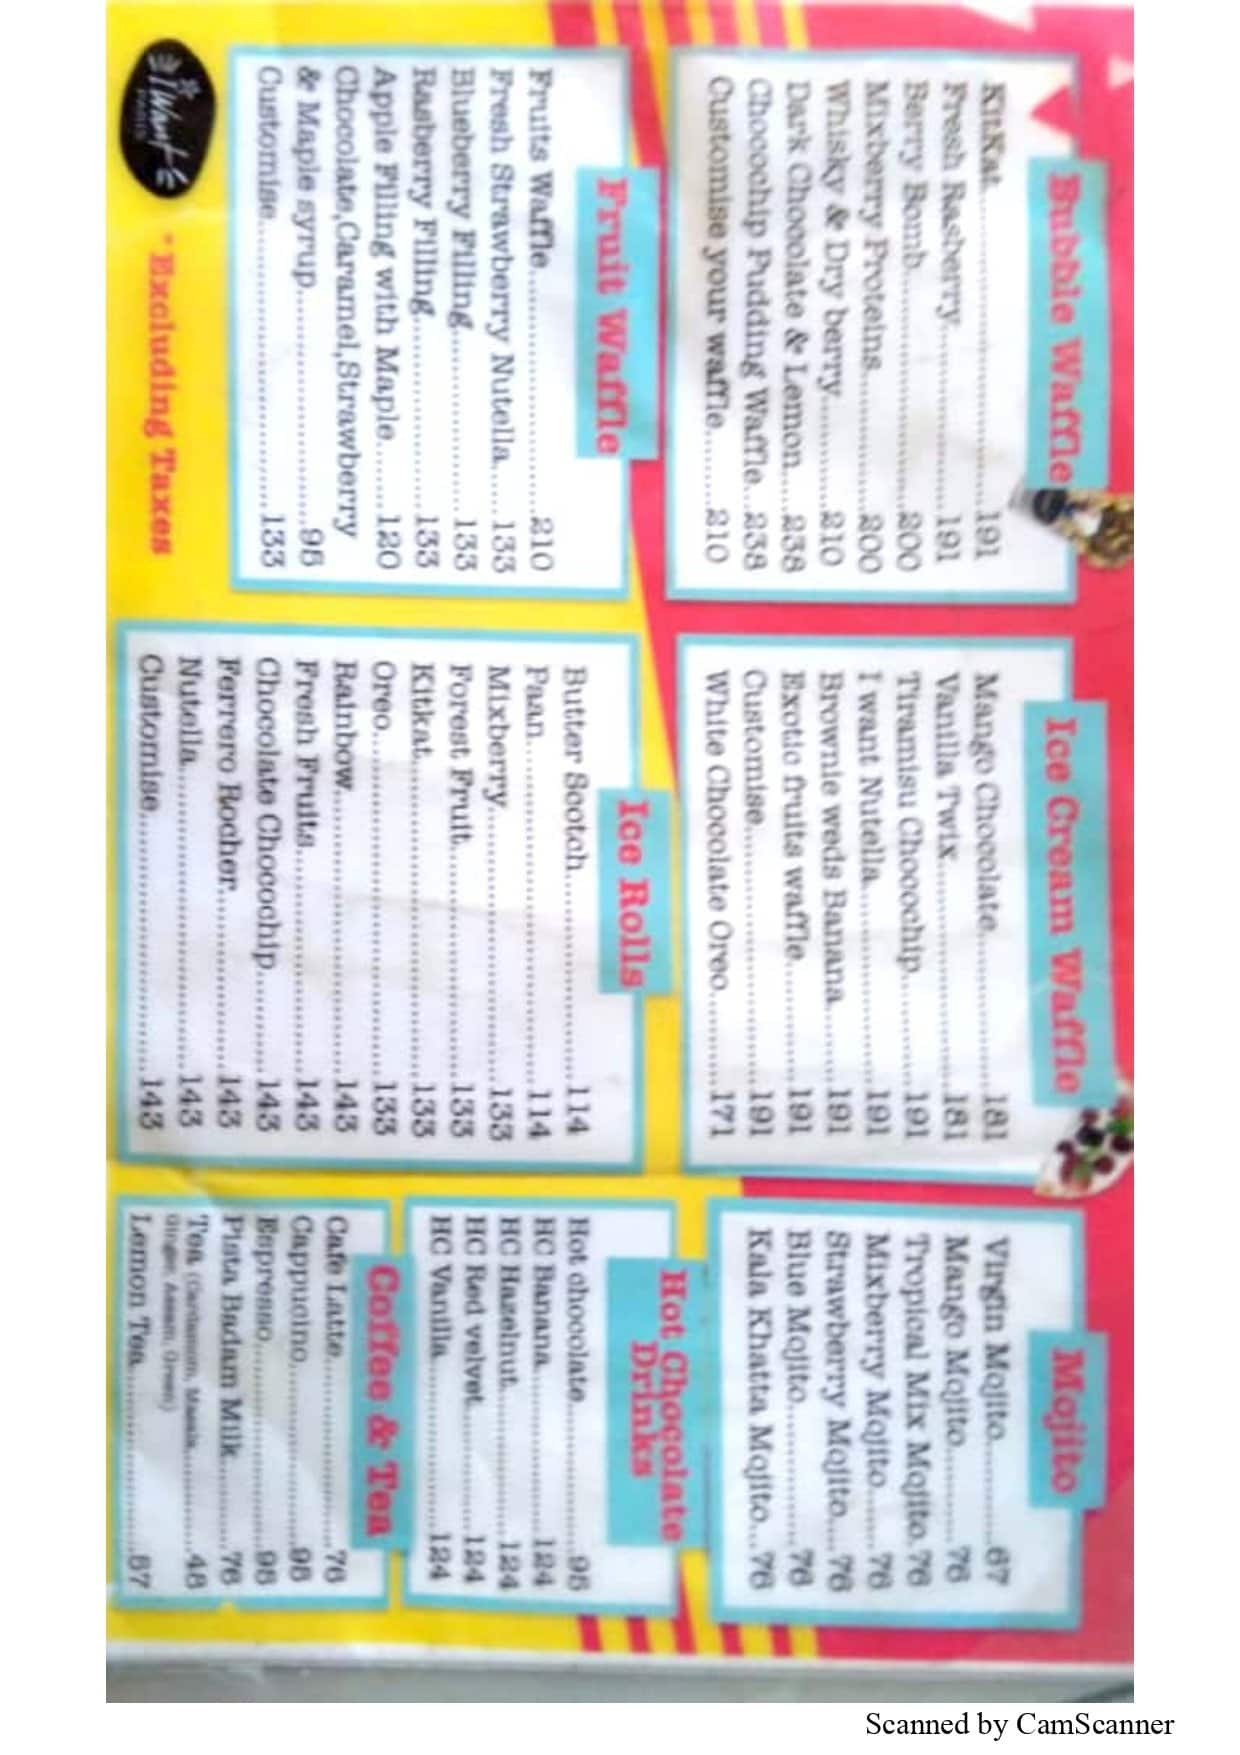 Bubble Waffle
KitKat..................191
Fresh Rasberry...............191
Berry Bomb...................200
Mixberry Proteins............200
Whisky & Dry berry...........210
Dark Chocolate & Lemon....238
Chocochip Pudding Waffle..238
Customise your waffle........210
Ice Cream Waffle
Mango Chocolate..............181
Vanilla Twix.................181
Tiramisu Chocochip...........191
I want Nutella...............191
Brownie weds Banana.........191
Exotic fruits waffle.........191
Customise....................191
White Chocolate Oreo.........171
Mojito
Virgin Mojito..........67
Mango Mojito..........76
Tropical Mix Mojito.76
Mixberry Mojito......76
Strawberry Mojito....76
Blue Mojito............76
Kala Khatta Mojito...76
Fruit Waffle
Fruits Waffle................210
Fresh Strawberry Nutella.....133
Blueberry Filling............133
Rasberry Filling.............133
Apple Filling with Maple.....120
Chocolate,Caramel,Strawberry
& Maple syrup................95
Customise....................133
Ice Rolls
Butter Scotch................114
Paan.........................114
Mixberry.....................133
Forest Fruit.................133
Kitkat.......................133
Oreo.........................133
Rainbow......................143
Fresh Fruits.................143
Chocolate Chocochip..........143
Ferrero Rocher...............143
Nutella......................143
Customise....................143
Hot Chocolate
Drinks
Hot chocolate..........95
HC Banana.............124
HC Hazelnut...........124
HC Red velvet.........124
HC Vanilla............124
Coffee & Tea
Cafe Latte.............76
Cappucino..............95
Espresso...............95
Pista Badam Milk.......76
Tea (Cardamom, Masala.......48
Ginger, Assam, Green)
Lemon Tea..............57
I Want
*Excluding Taxes
Scanned by CamScanner